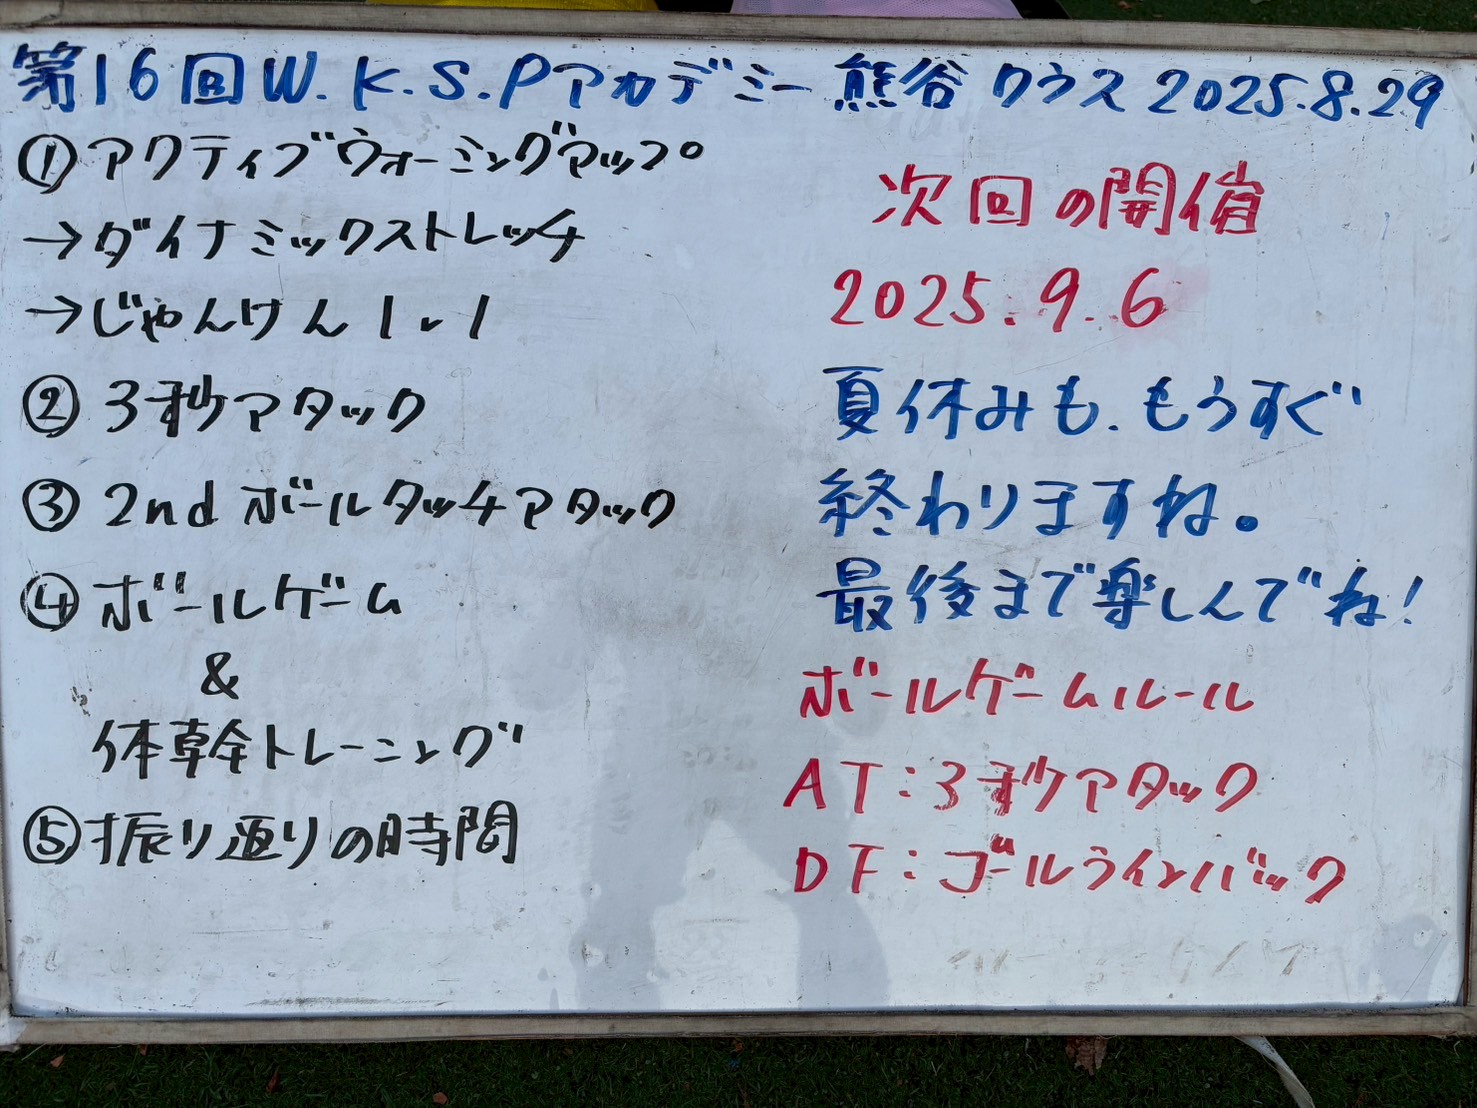 第16回W.K.S.Pアカデミー熊谷クラス2025.8.29
①アクティブウォーミングアップ
→ダイナミックストレッチ
→じゃんけん1v1
②3秒アタック
③2ndボールタッチアタック
④ボールゲーム
&
体幹トレーニング
⑤振り返りの時間
次回の開催
2025.9.6
夏休みも、もうすぐ
終わりますね。
最後まで楽しんでね!
ボールゲームルール
AT:3秒アタック
DF:ゴールラインバック